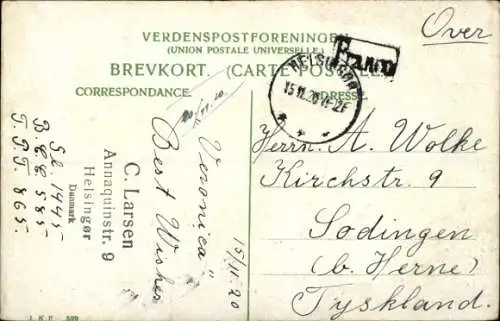 Over
VERDENSPOSTFORENINGEN
(UNION POSTALE UNIVERSELLE.)
Franco
BREVKORT. (CARTE POSTALE
CORRESPONDANCE.
ADRESSE.
HELSINGØR
15.11.20
Herrn. A. Wolke
Kirchstr. 9
Sodingen
(b. Herne)
Tyskland.
15/11.20
"Veronica"
Best Wishes
C. Larsen
Annaquinstr. 9
Helsingør
Danmark
Gl. 1445
B.C.C 585
T.P.T. 865.
J. K. F. 599